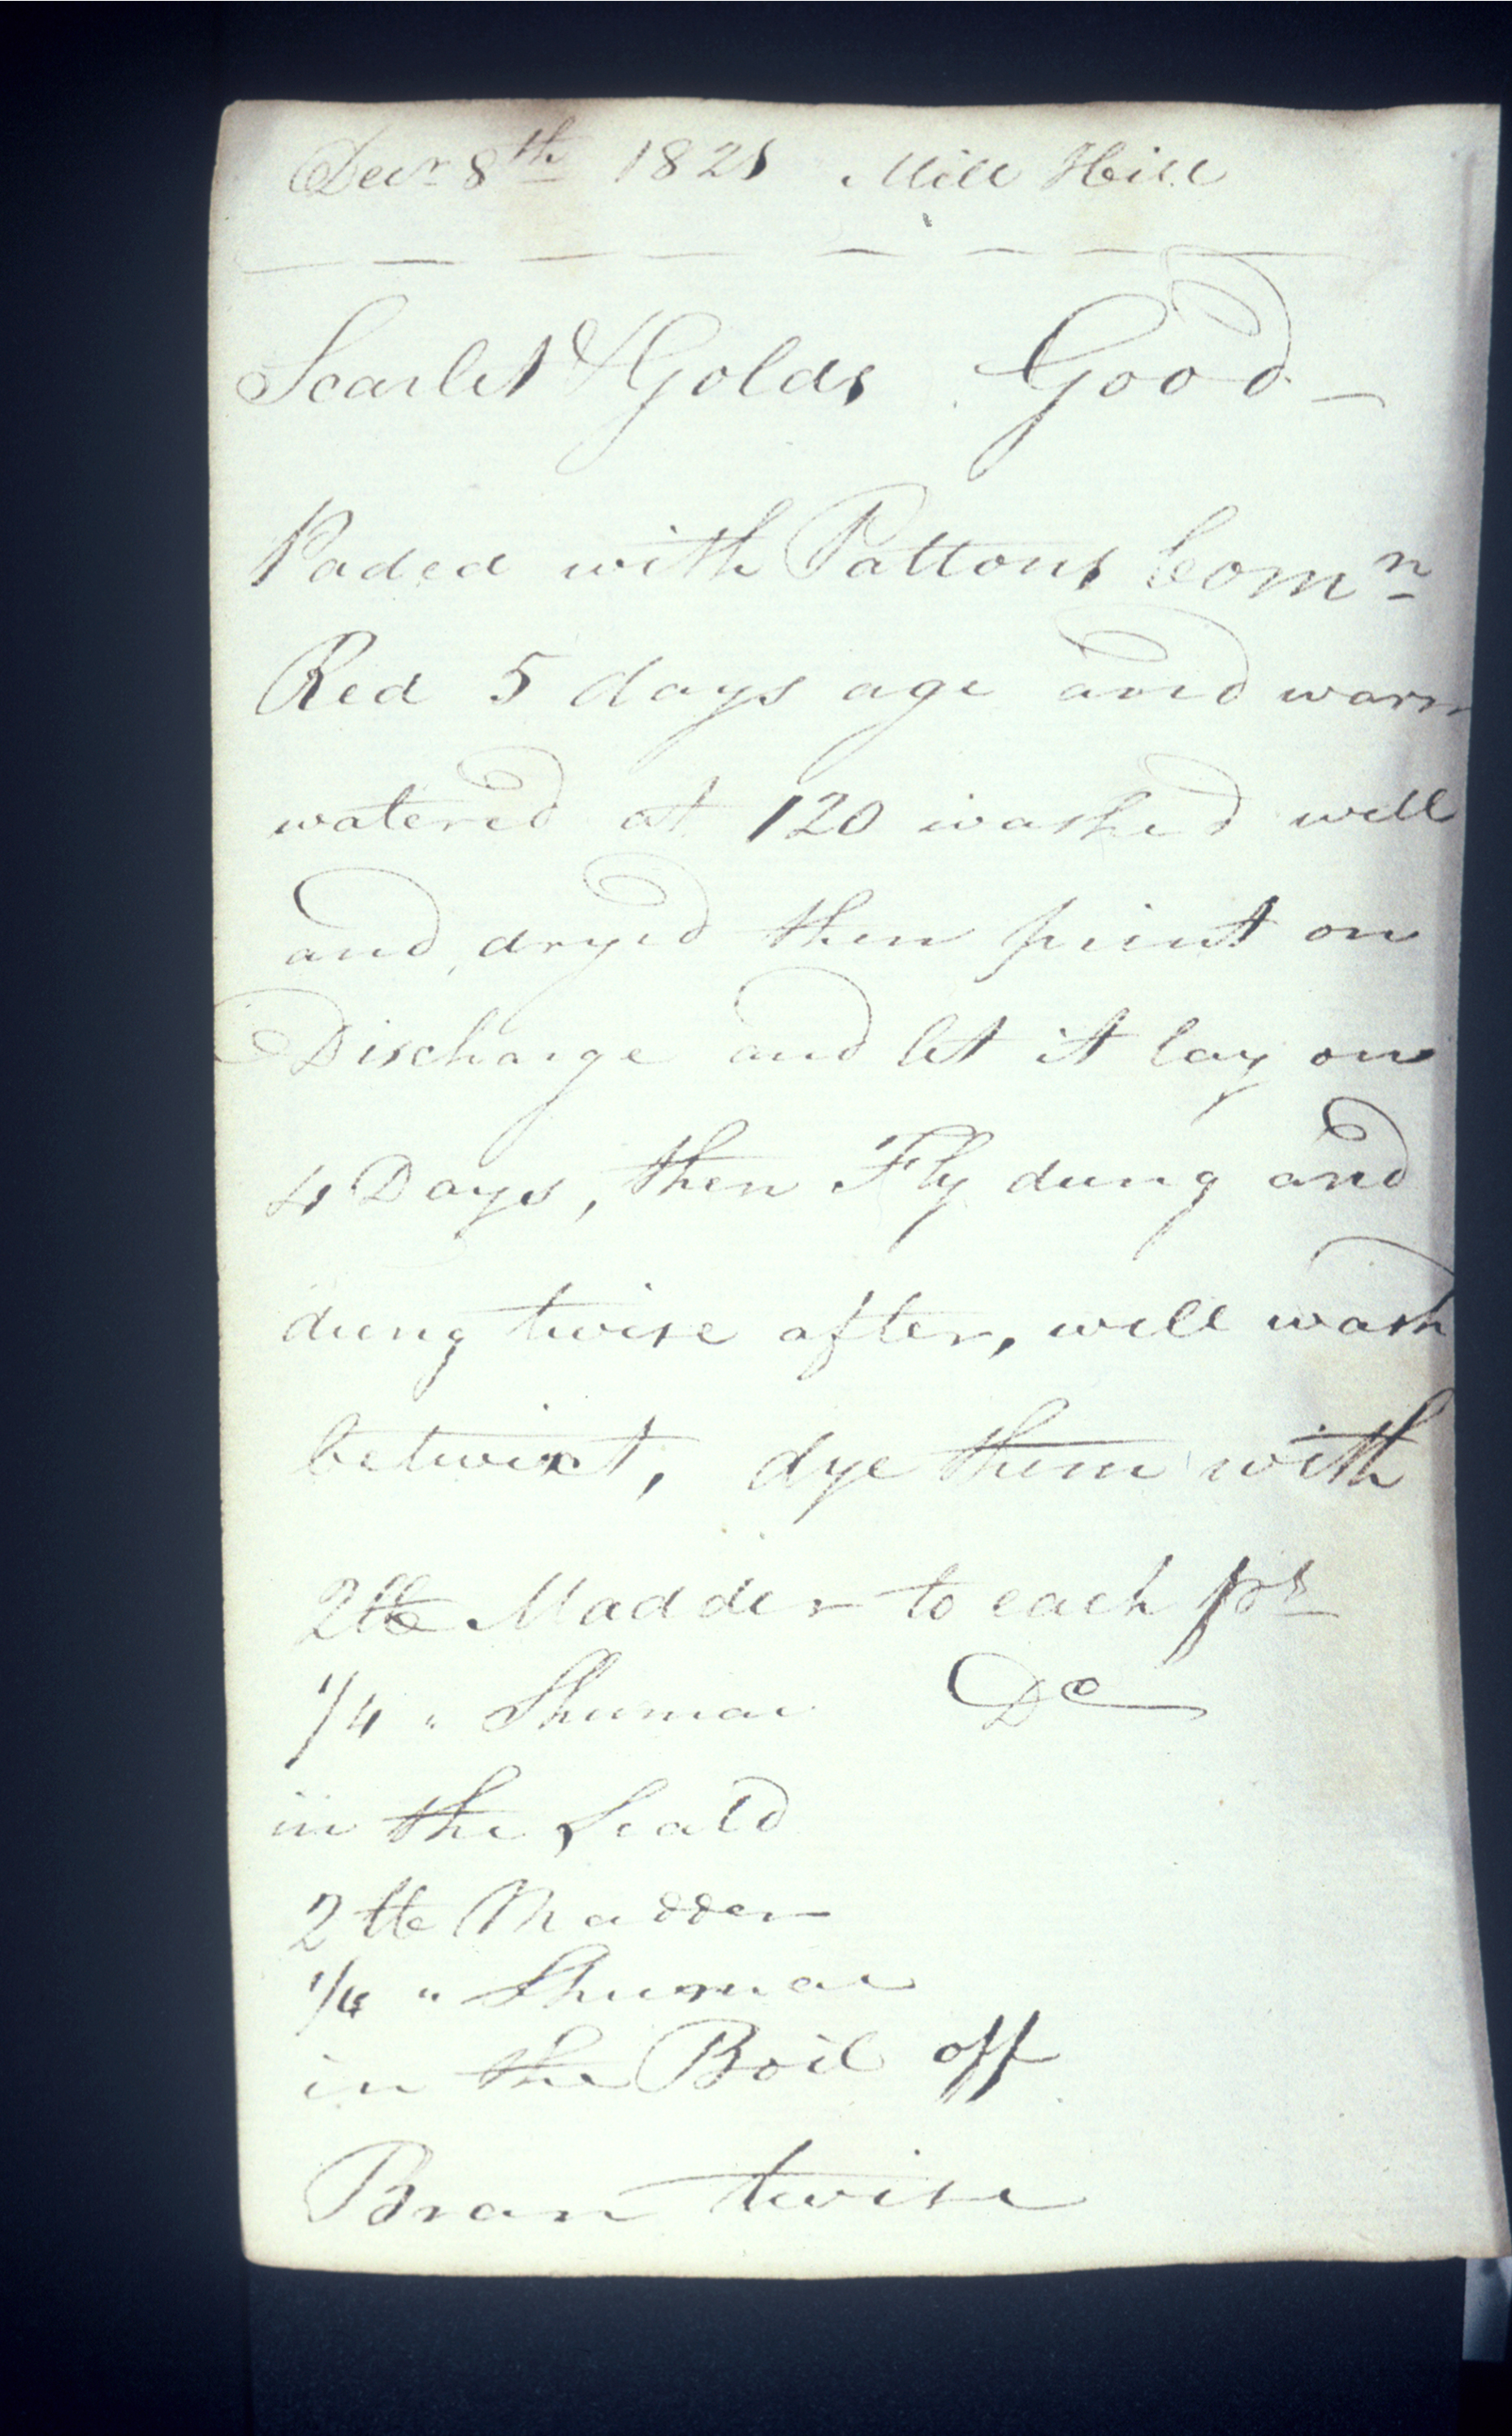 Decr 8th 1821 Mill Hill
Scarlet & Golds Good
Paded with Pattons Comn
Red 5 days age and warm
watered at 120 washed well
and dryed then print on
Discharge and let it lay on
4 Days, then Fly dung and
dung twise after, well wash
betwixt, dye them with
2 lb Madder to each ps
1/4 " Shumac Do
in the Scald
2 lb Madder
1/4 " Shumac
in the Boil off
Bran twise